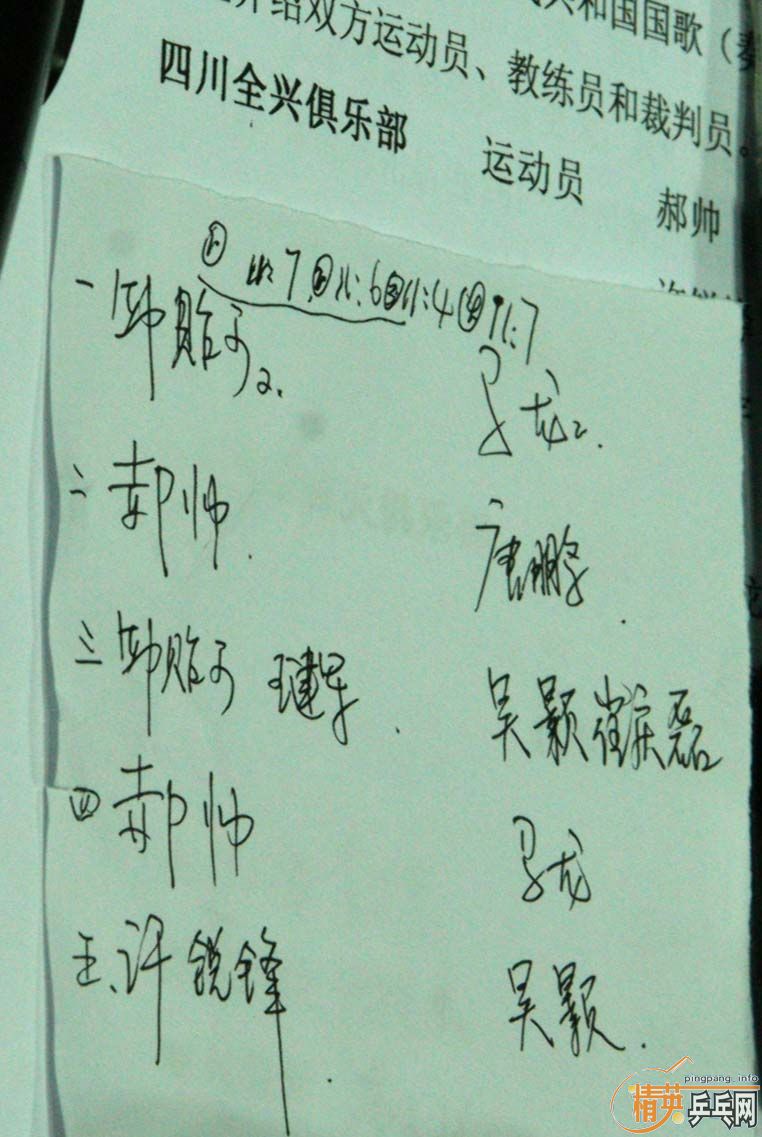 和国国歌（
介绍双方运动员、教练员和裁判员。
四川全兴俱乐部 运动员 郝帅
① 11:7 ② 11:6 ③ 11:4 ④ 11:7
一 郭贻子 2. 马龙 2.
二 郝帅. 唐鹏
三 郭贻子 王建军. 吴颢 崔庆磊
四 郝帅 马龙
五、许锐锋. 吴颢.
pingpang.info
精英乒乓网